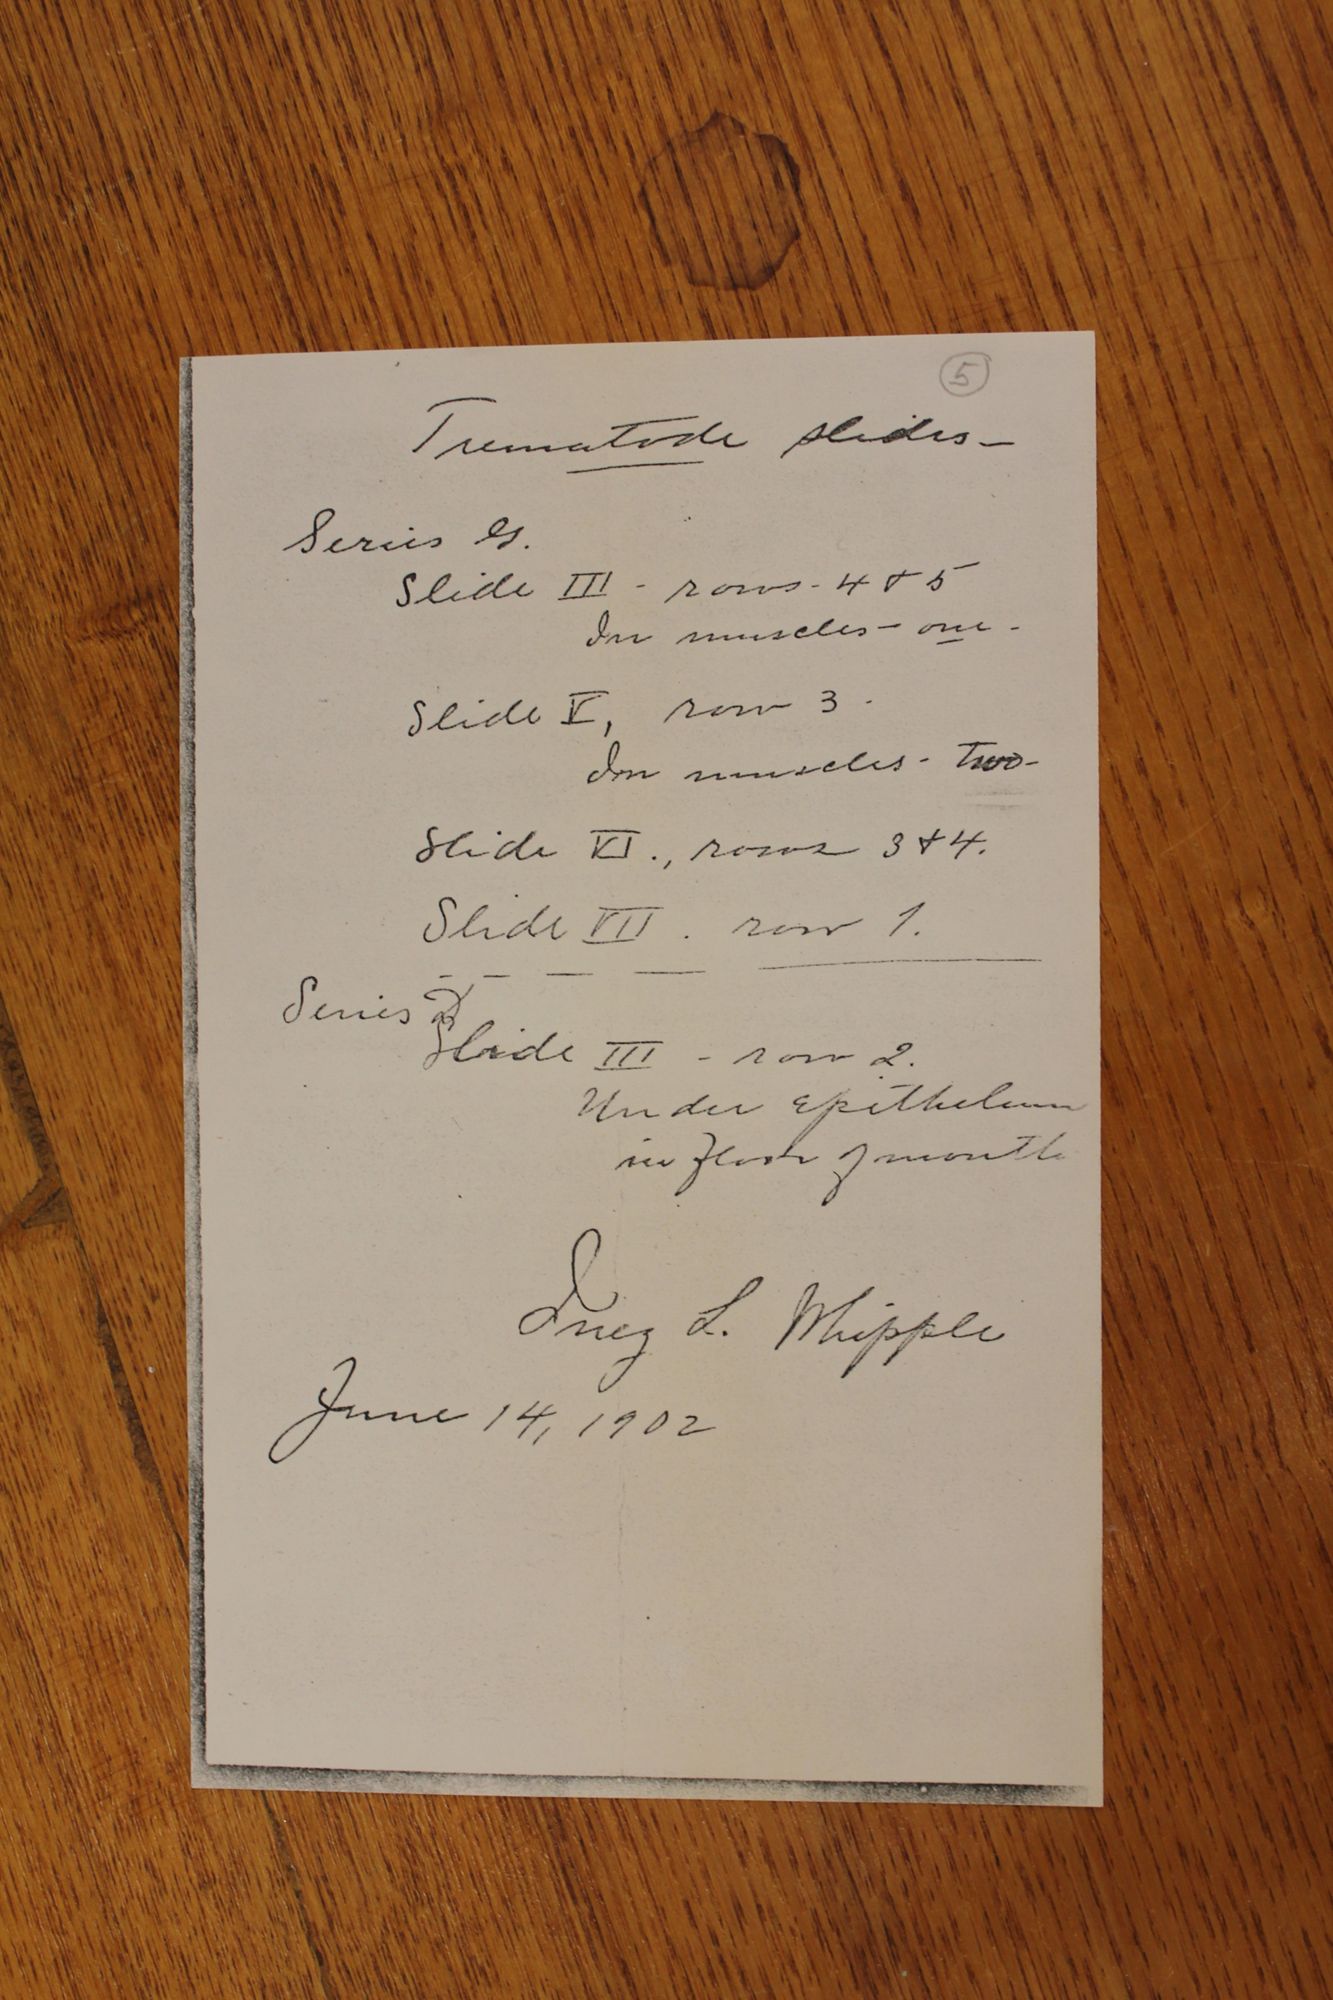 5
Trematode slides—
Series G.
Slide III - rows - 4 & 5
In muscles - one -
Slide V, row 3 -
In muscles - two -
Slide VI., rows 3 & 4.
Slide VII. row 1.
Series D
Slide III - row 2.
Under epithelium
in floor of mouth
Inez L. Whipple
June 14, 1902